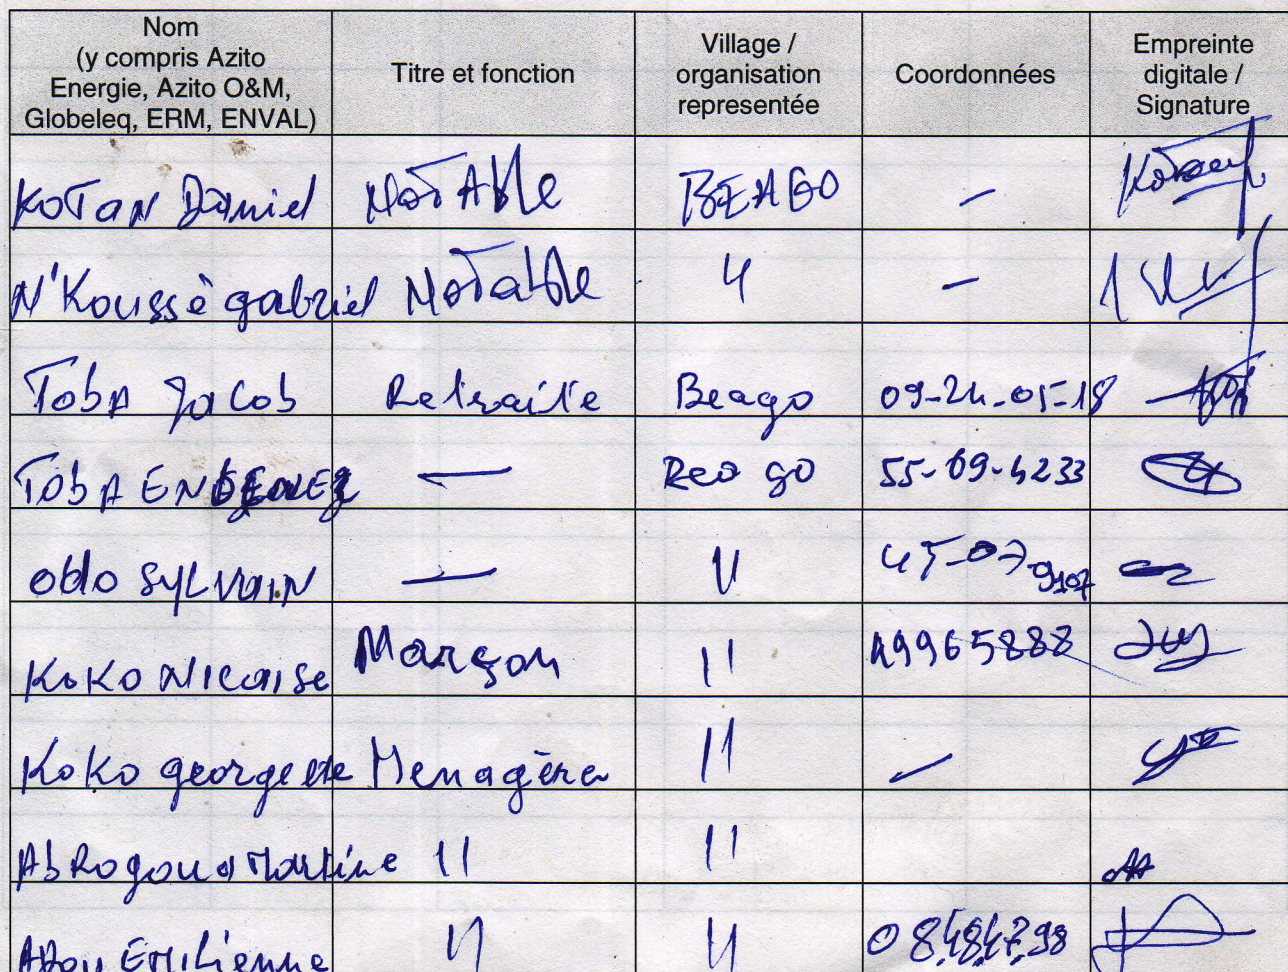 Nom
(y compris Azito
Energie, Azito O&M,
Globeleq, ERM, ENVAL)
Titre et fonction
Village /
organisation
representée
Coordonnées
Empreinte
digitale /
Signature
KOTAN Daniel NOTABle BEAGO —
N'Koussè gabriel NOTable 〃 —
TobA Jacob Retraité Beago 09-24-05-18
TobA — Beago 55-09-4233
Odo SYLVAIN — 〃 45-07-9107
KoKo Nicaise Marçon 〃 49965888
KoKo georgette Menagère 〃 —
Martine 〃 〃
EMILienne 〃 〃 08.48.47.98